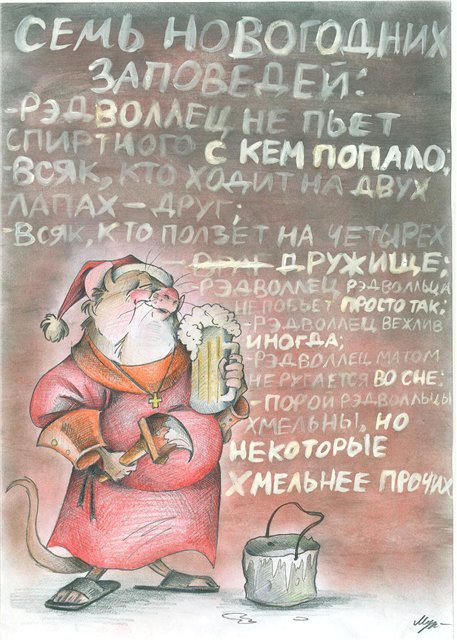 СЕМЬ НОВОГОДНИХ
ЗАПОВЕДЕЙ:
-РЭДВОЛЛЕЦ НЕ ПЬЕТ
СПИРТНОГО С КЕМ ПОПАЛО;
-ВСЯК, КТО ХОДИТ НА ДВУХ
ЛАПАХ — ДРУГ;
-ВСЯК, КТО ПОЛЗЕТ НА ЧЕТЫРЕХ
— ДРУГ ДРУЖИЩЕ;
-РЭДВОЛЛЕЦ РЭДВОЛЛЬЦА
НЕ ПОБЬЕТ ПРОСТО ТАК;
-РЭДВОЛЛЕЦ ВЕЖЛИВ
ИНОГДА;
-РЭДВОЛЛЕЦ МАТОМ
НЕ РУГАЕТСЯ ВО СНЕ;
-ПОРОЙ РЭДВОЛЛЬЦЫ
ХМЕЛЬНЫ, НО
НЕКОТОРЫЕ
ХМЕЛЬНЕЕ ПРОЧИХ